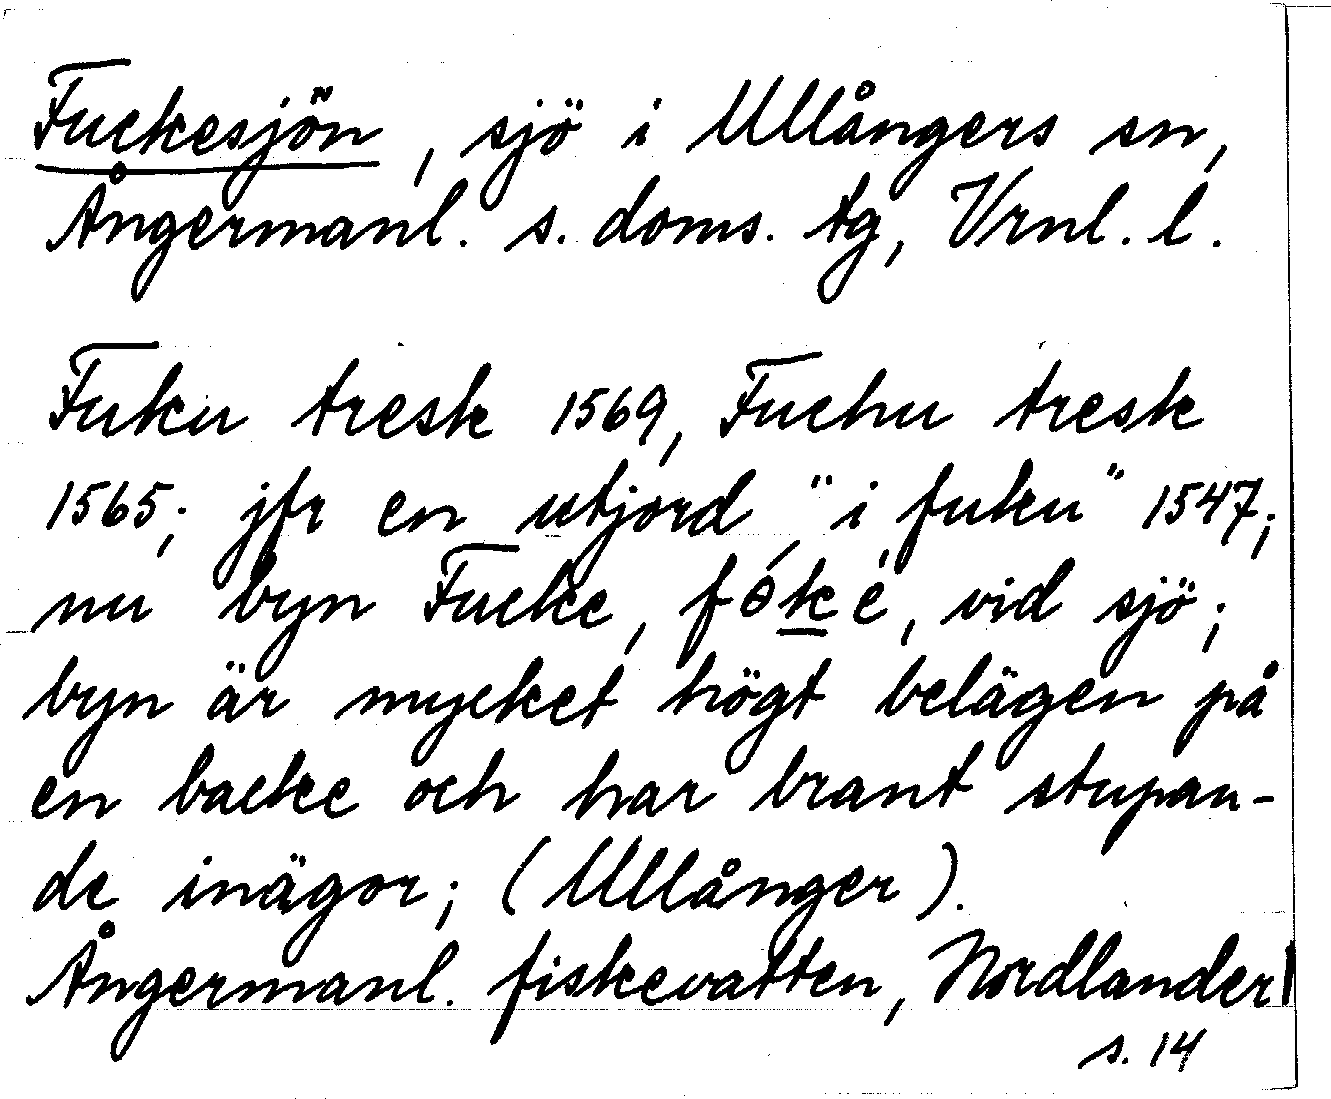 Fuckesjön, sjö i Ullångers sn,
Ångermanl. s. doms. tg, Vrnl. l.
Fuku tresk 1569, Fuchu tresk
1565; jfr en utjord "i fuku" 1547;
nu byn Fucke, fókè, vid sjö;
byn är mycket högt belägen på
en backe och har brant stupan-
de inägor; (Ullånger).
Ångermanl. fiskevatten, Nordlander
s. 14